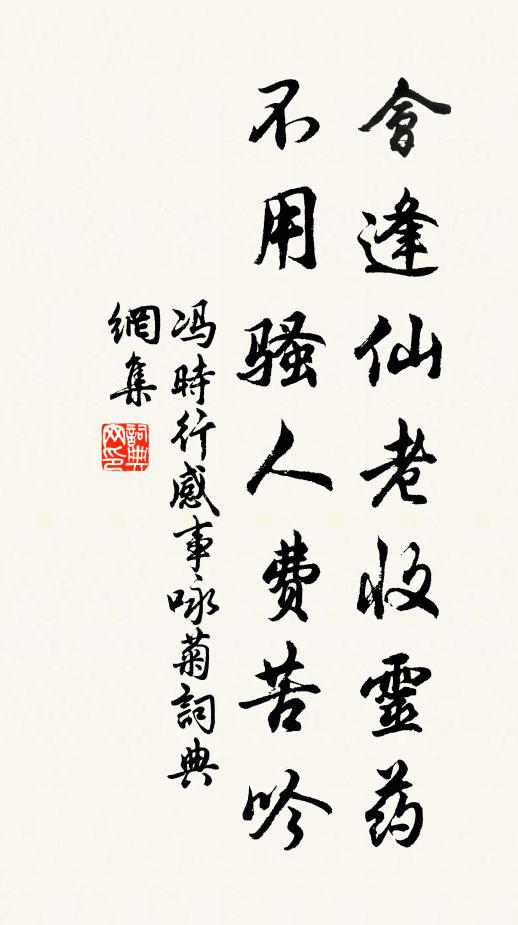 會逢仙老收靈药
不用骚人费苦吟
冯時行感事咏菊詞典
網集
詞典
网印